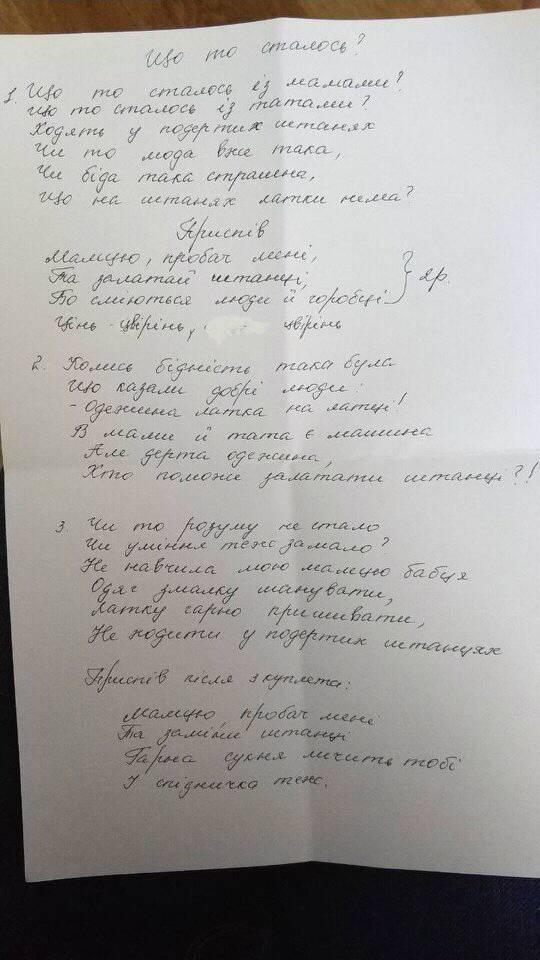 Що то сталось?
1. Що то сталось із мамами?
Що то сталось із татами?
Ходять у подертих штанях
Чи то мода вже така,
Чи біда така страшна,
Що на штанях латки нема?
Приспів
Мамцю, пробач мені,
Та залатай штанці,
Бо сміються люди й горобці } 2р.
Цінь-цвірінь, цвірінь
2. Колись бідність така була
Що казали добрі люди:
- Одежина латка на латці!
В мами й тата є машина
Але дерта одежина,
Хто поможе залатати штанці?!
3. Чи то розуму не стало
Чи уміння теж замало?
Не навчила мою мамцю бабця
Одяг змалку шанувати,
Латку гарно пришивати,
Не ходити у подертих штанцях
Приспів після 3 куплета:
Мамцю, пробач мені
Та заміни штанці
Гарна сукня личить тобі
І спідничка теж.